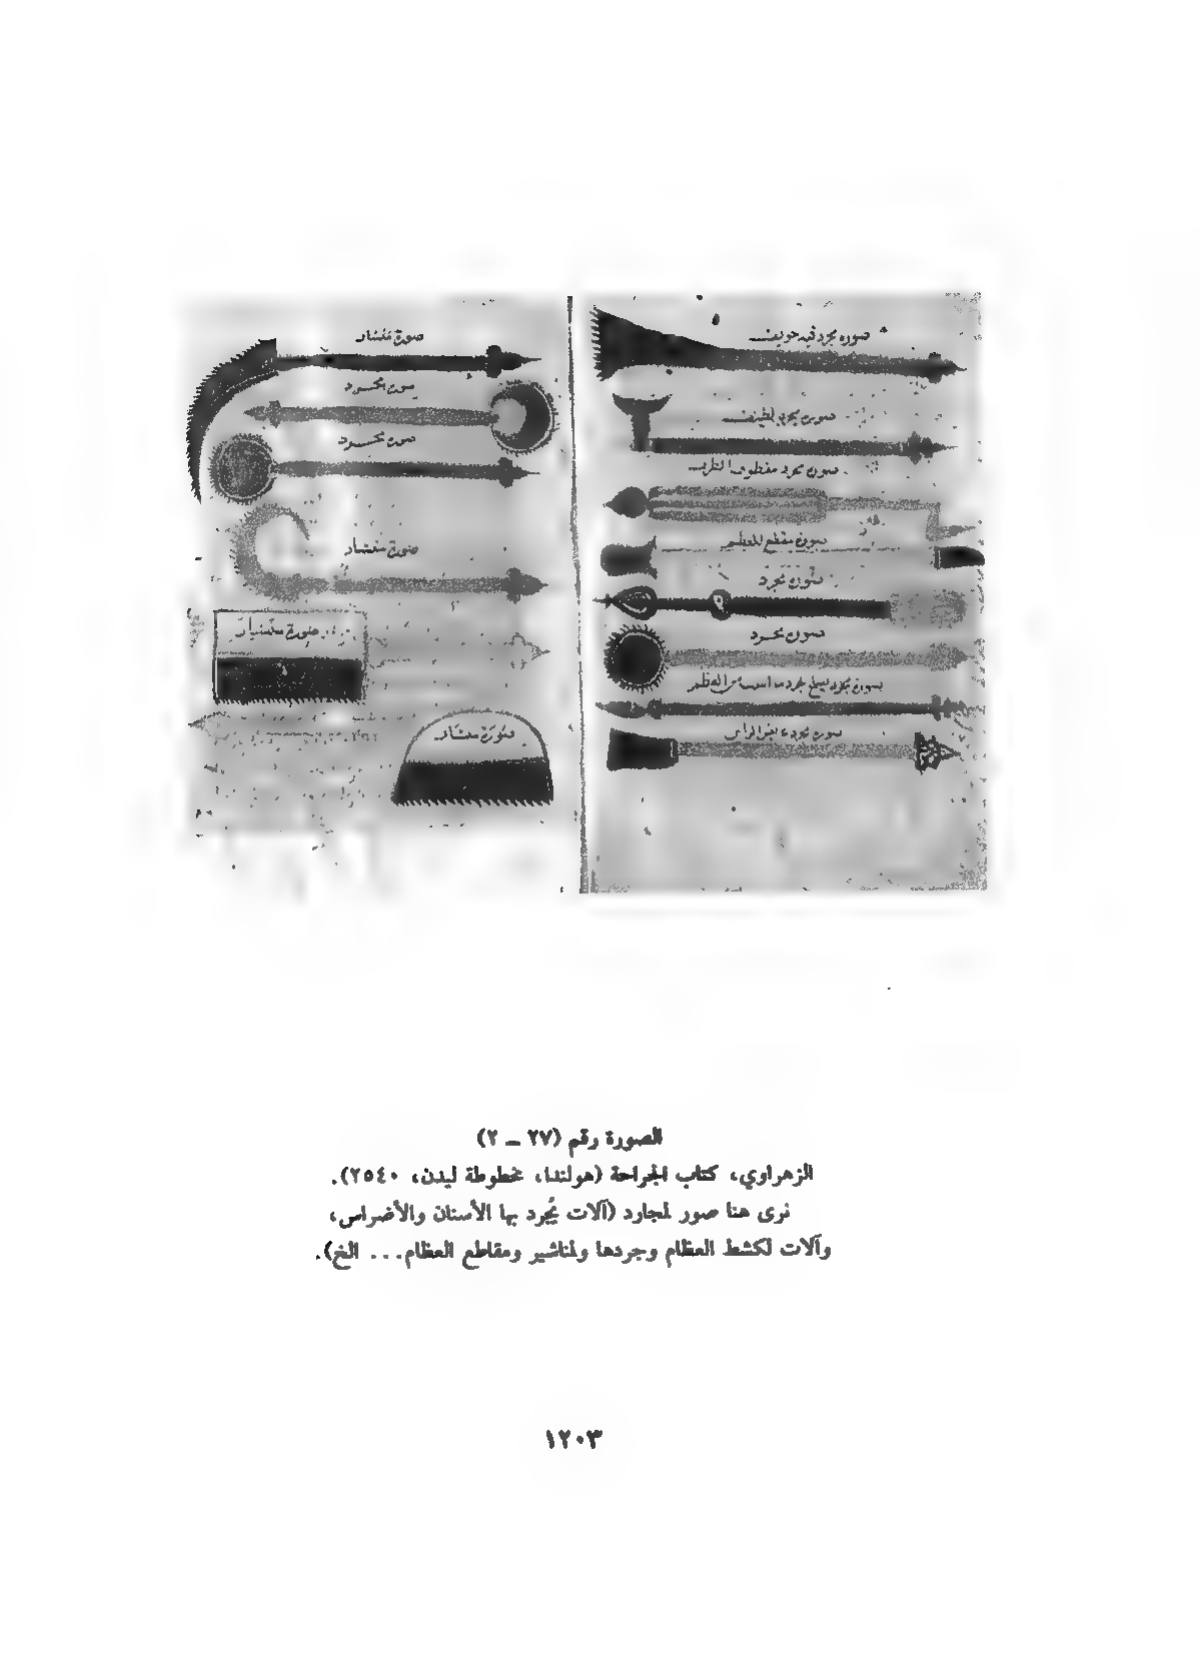 صورة مجرد فيه تجويف
صورة مجرد لطيف
صورة مجرد معطوف الطرف
صورة مقطع للعظم
صورة مجرد
صورة مجرد
صورة مجرد
صورة مجرد
صورة منشار
صورة مجرد
صورة مجرد
صورة منشار
صورة منشار
صورة منشار
الصورة رقم (٢٧ – ٢)
الزهراوي، كتاب الجراحة (هولندا، مخطوطة ليدن، ٢٥٤٠).
نرى هنا صور لمجاود (آلات يُجرد بها الأسنان والأضراس،
وآلات لكشط العظام وجردها ولمناشير ومقاطع العظام... الخ).
١٢٠٣